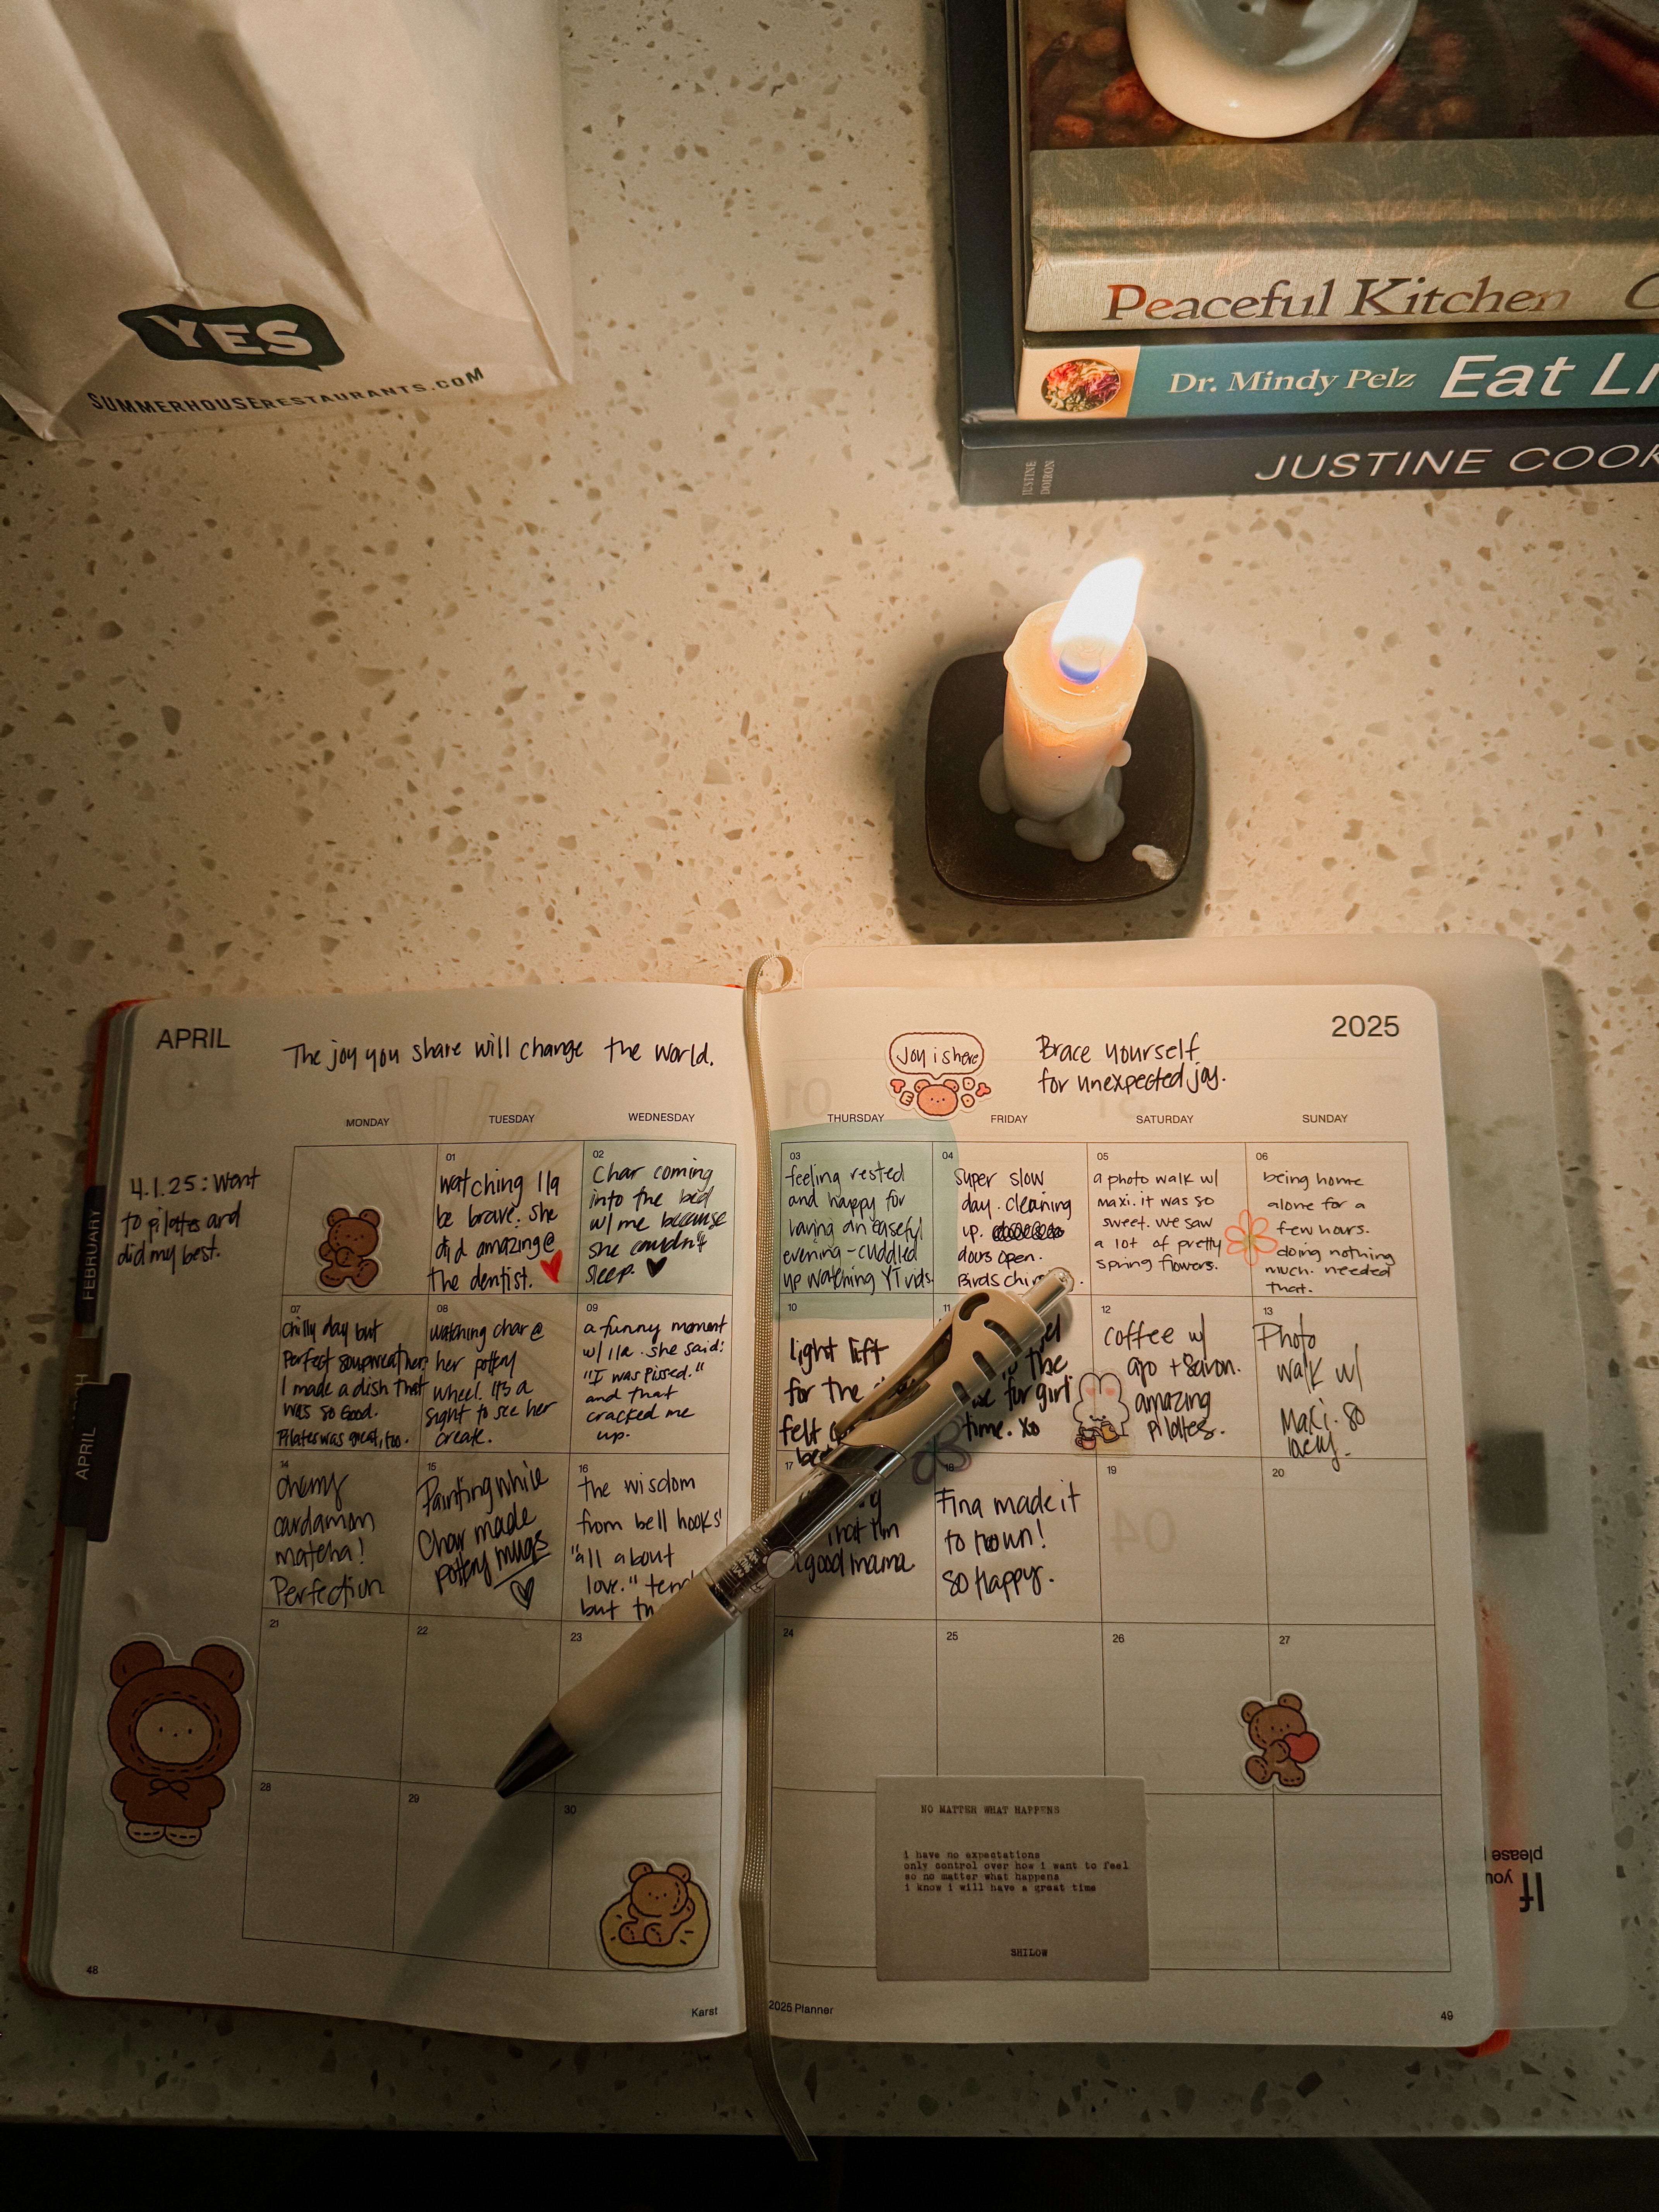 YES
SUMMERHOUSERESTAURANTS.COM
Peaceful Kitchen
Dr. Mindy Pelz Eat
JUSTINE DOIRON
JUSTINE
APRIL
The joy you share will change the world.
Joy is here
Brace yourself
for unexpected joy.
2025
MONDAY
TUESDAY
WEDNESDAY
THURSDAY
FRIDAY
SATURDAY
SUNDAY
4.1.25: Went
to pilates and
did my best.
01
watching Ila
be brave. she
did amazing @
the dentist.
02
Char coming
into the bed
w/ me because
she couldn't
sleep.
03
feeling rested
and happy for
having an easeful
evening - cuddled
up watching YT vids.
04
Super slow
day. cleaning
up.
doors open.
Birds
05
a photo walk w/
maxi. it was so
sweet. we saw
a lot of pretty
spring flowers.
06
being home
alone for a
few hours.
doing nothing
much. needed
that.
07
chilly day but
perfect soup weather.
I made a dish that
was so good.
Pilates was great, too.
08
watching char @
her pottery
wheel. It's a
sight to see her
create.
09
a funny moment
w/ Ila. she said:
"I was pissed."
and that
cracked me
up.
10
light lift
for the
felt
11
the
for girl
time. xo
12
coffee w/
+
amazing
pilates.
13
Photo
walk w/
Maxi. So
14
cherry
cardamom
matcha!
Perfection
15
Painting while
Char made
pottery mugs
16
the wisdom
from bell hooks'
"all about
love."
but
17
that I'm
a good mama
18
Fina made it
to town!
so Happy.
19
20
21
22
23
24
25
26
27
28
29
30
NO MATTER WHAT HAPPENS
i have no expectations
only control over how i want to feel
so no matter what happens
i know i will have a great time
SHILOW
FEBRUARY
APRIL
If
you
please
48
Karst
2025 Planner
49